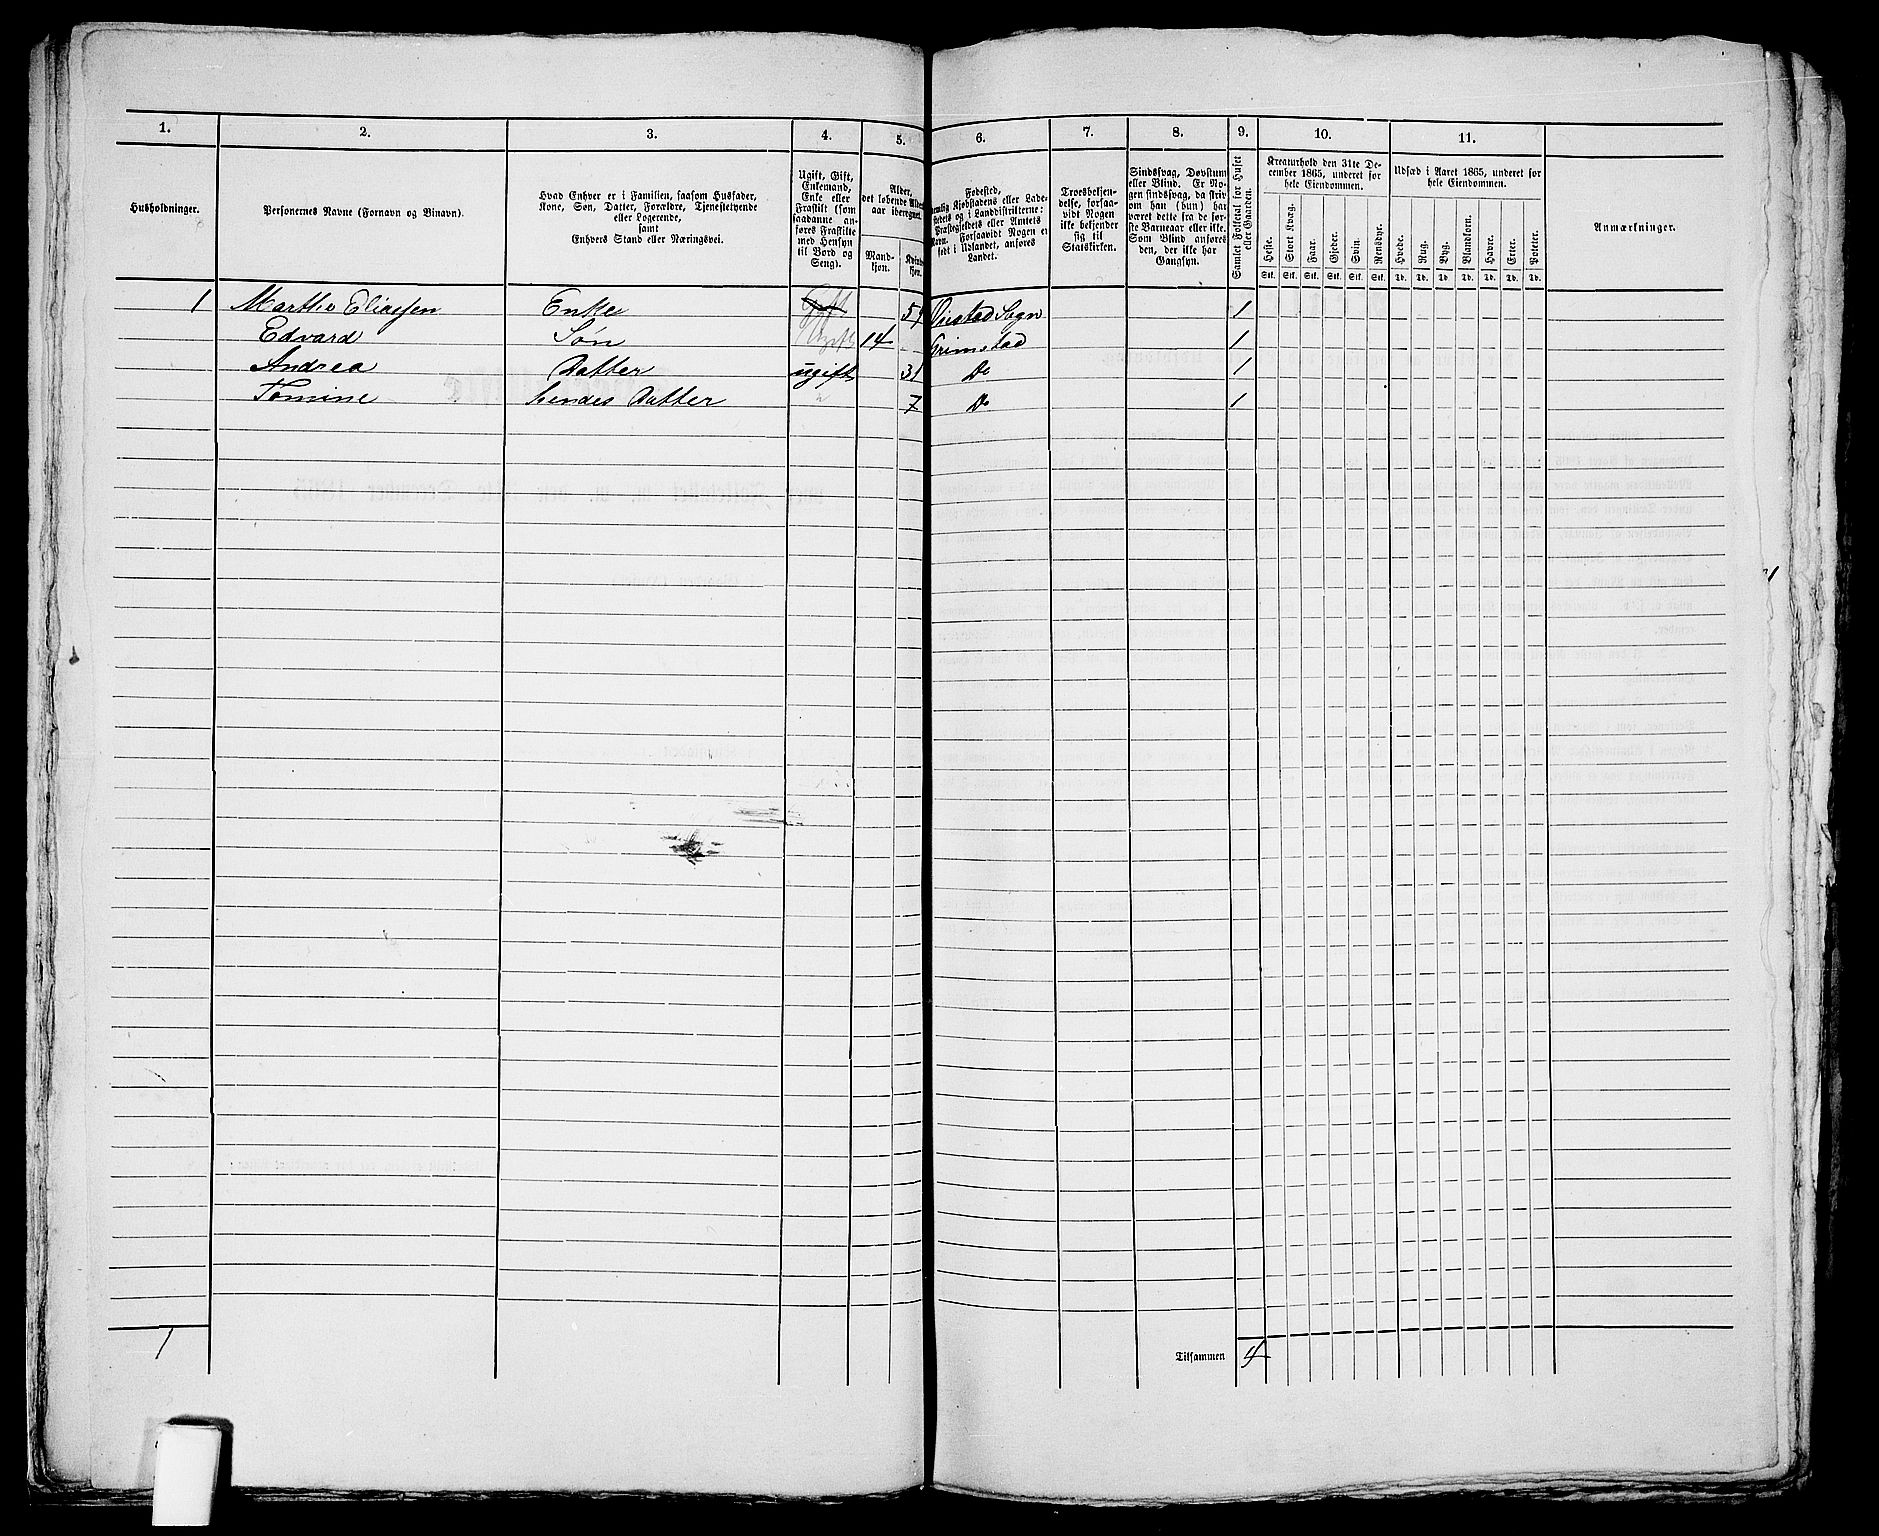 1. 2. 3. 4. 5. 6. 7. 8. 9. 10. 11.
Husholdninger.
Personernes Navne (Fornavn og Binavn).
Hvad Enhver er i Familien, saasom Husfader,
Kone, Søn, Datter, Forældre, Tjenestetyende
eller Logerende,
samt
Enhvers Stand eller Næringsvei.
Ugift, Gift,
Enkemand,
Enke eller
Fraskilt (som
saadanne an-
føres Fraskilte
med Hensyn
til Bord og
Seng).
Alder,
det løbende Alders-
aar iberegnet.
Mand-
kjøn.
Kvinde-
kjøn.
Fødested,
nemlig Kjøbstadens eller Lade-
stedets og i Landdistrikterne:
Præstegjeldets eller Amtets
Navn. Forsaavidt Nogen er
født i Udlandet, anføres
Landet.
Troesbekjen-
delse, forsaa-
vidt Nogen
ikke bekjender
sig til
Statskirken.
Sindssvag, Døvstum
eller Blind. Er No-
gen sindssvag, da skriv
om han (hun) har
været dette fra de før-
ste Barneaar eller ikke.
Som Blind anføres
den, der ikke har
Gangsyn.
Samlet Folketal for Huset
eller Gaarden.
Kreaturhold den 31te De-
cember 1865, underet for
hele Eiendommen.
Heste. Stort Kvæg. Faar. Gjeder. Svin. Rensdyr.
Stk. Stk. Stk. Stk. Stk. Stk.
Udsæd i Aaret 1865, underet for
hele Eiendommen.
Hvede. Rug. Byg. Blandkorn. Havre. Erter. Poteter.
Td. Td. Td. Td. Td. Td. Td.
Anmærkninger.
1 Marthe Eliassen Enke Gift 59 Øiestad Sogn 1
Edvard Søn Ugift 14 Grimstad 1
Andrea Datter ugift 31 Do 1
Tomine hendes Datter 7 Do 1
1 Tilsammen 4